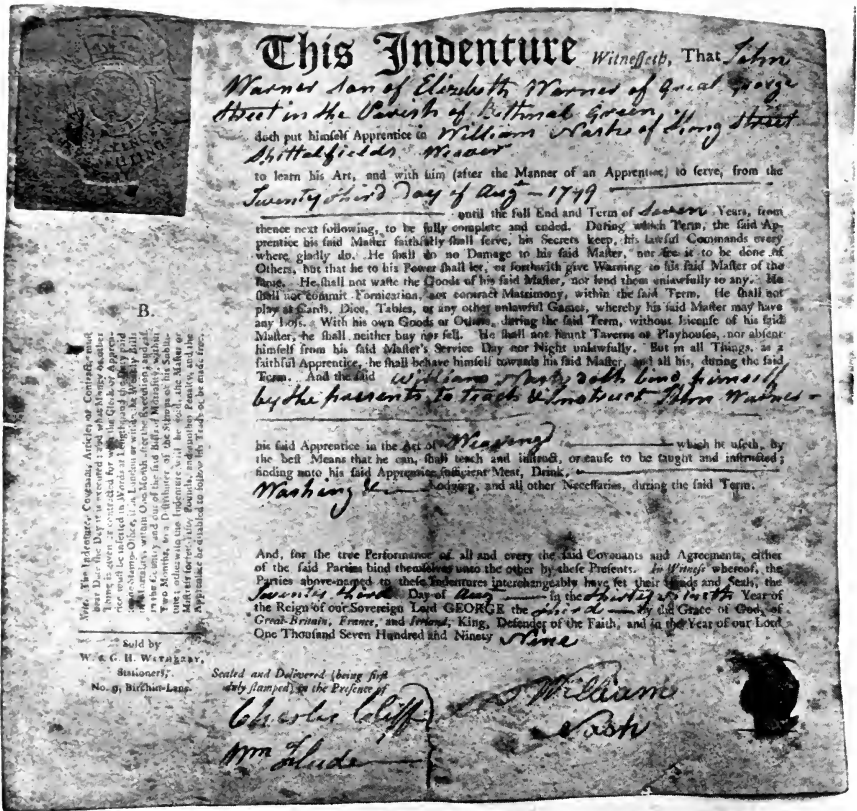 This Indenture Witnesseth, That John
Warner son of Elizabeth Warner of Great George
Street in the Parish of Bethnal Green
doth put himself Apprentice to William Nash of Kong Street
Spittalfields Weaver
to learn his Art, and with him (after the Manner of an Apprentice) to serve, from the
Twenty third Day of Augt 1799
until the full End and Term of Seven Years, from
thence next following, to be fully complete and ended. During which Term, the said Ap-
prentice his said Master faithfully shall serve, his Secrets keep, his lawful Commands every
where gladly do. He shall do no Damage to his said Master, nor see it to be done of
Others, but that he to his Power shall let, or forthwith give Warning to his said Master of the
same. He shall not waste the Goods of his said Master, nor lend them unlawfully to any. He
shall not commit Fornication, nor contract Matrimony, within the said Term. He shall not
play at Cards, Dice, Tables, or any other unlawful Games, whereby his said Master may have
any Loss. With his own Goods or Others, during the said Term, without License of his said
Master, he shall neither buy nor sell. He shall not haunt Taverns or Playhouses, nor absent
himself from his said Master's Service Day nor Night unlawfully. But in all Things, as a
faithful Apprentice, he shall behave himself towards his said Master, and all his, during the said
Term. And the said William Nash doth bind himself
by the presents to teach & instruct John Warner
his said Apprentice in the Art of Weaving which he useth, by
the best Means that he can, shall teach and instruct, or cause to be taught and instructed;
finding unto his said Apprentice sufficient Meat, Drink,
Washing & Lodging, and all other Necessaries, during the said Term.
And, for the true Performance of all and every the said Covenants and Agreements, either
of the said Parties bind themselves unto the other by these Presents. In Witness whereof, the
Parties above-named to these Indentures interchangeably have set their Hands and Seals, the
Twenty third Day of Augt in the thirty ninth Year of
the Reign of our Sovereign Lord GEORGE the third by the Grace of God, of
Great-Britain, France, and Ireland, King, Defender of the Faith, and in the Year of our Lord
One Thousand Seven Hundred and Ninety Nine
Sealed and Delivered (being first
duly stamped) in the Presence of
Charles Cliff
Wm Flude
William
Nash
B.
Note. The Indenture, Covenant, Articles or Contract, must
bear Date the Day it is executed; and what Money or other
Thing is given or contracted for with the Clerk or Appren-
tice must be inserted in Words at Length; and the Duty paid
Two Months, to a Distributor of the Stamps or his Substi-
tute; otherwise the Indenture will be void, the Master or
Mistress forfeit Fifty Pounds, and another Penalty, and the
Apprentice be disabled to follow his Trade, or be made free.
Sold by
W. & G. H. WITHERBY,
Stationers,
No. 9, Birchin-Lane.